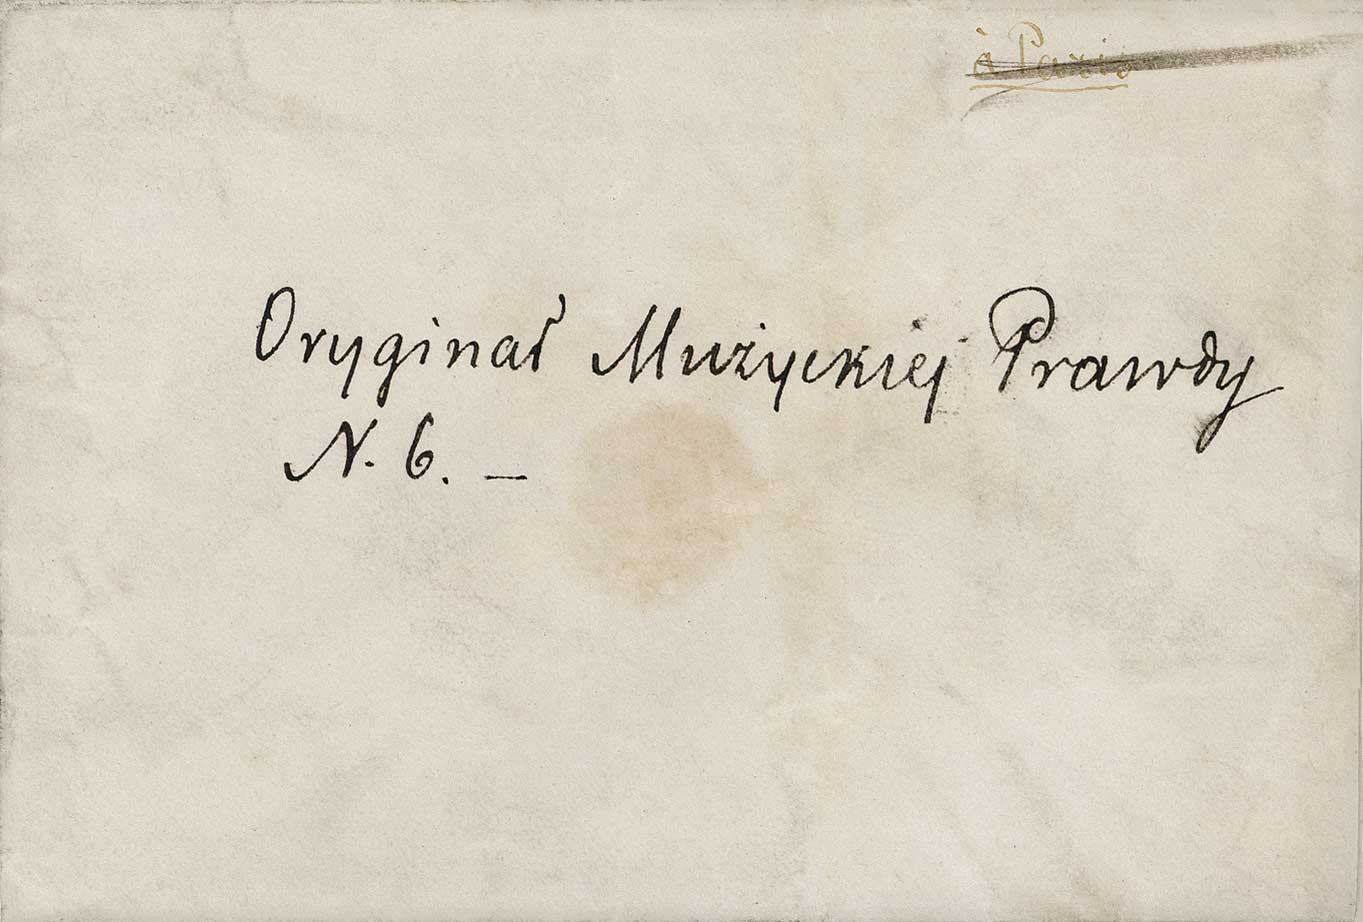 à Paris
Oryginał Mużyckiej Prawdy
N. 6. –